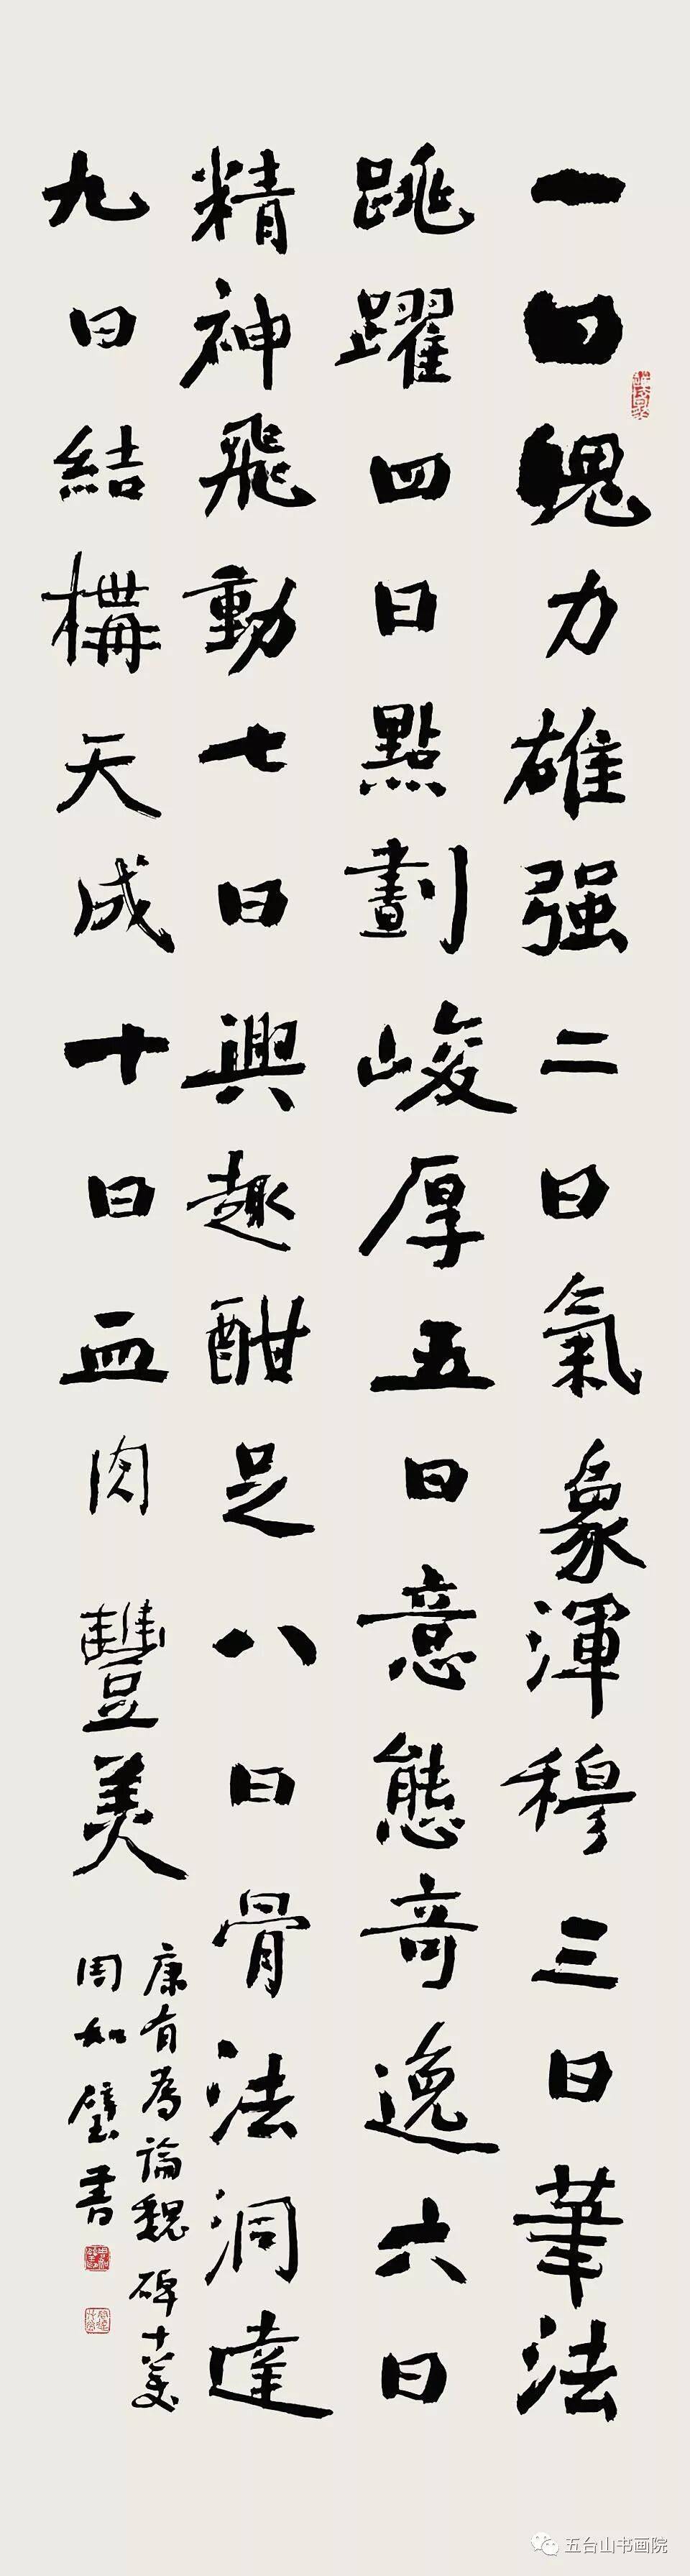 一曰魄力雄强二曰氣象渾穆三曰筆法
跳躍四曰點劃峻厚五曰意態奇逸六曰
精神飛動七曰興趣酣足八曰骨法洞達
九曰結構天成十曰血肉豐美
康有為論魏碑十美
周如璧書
五台山书画院